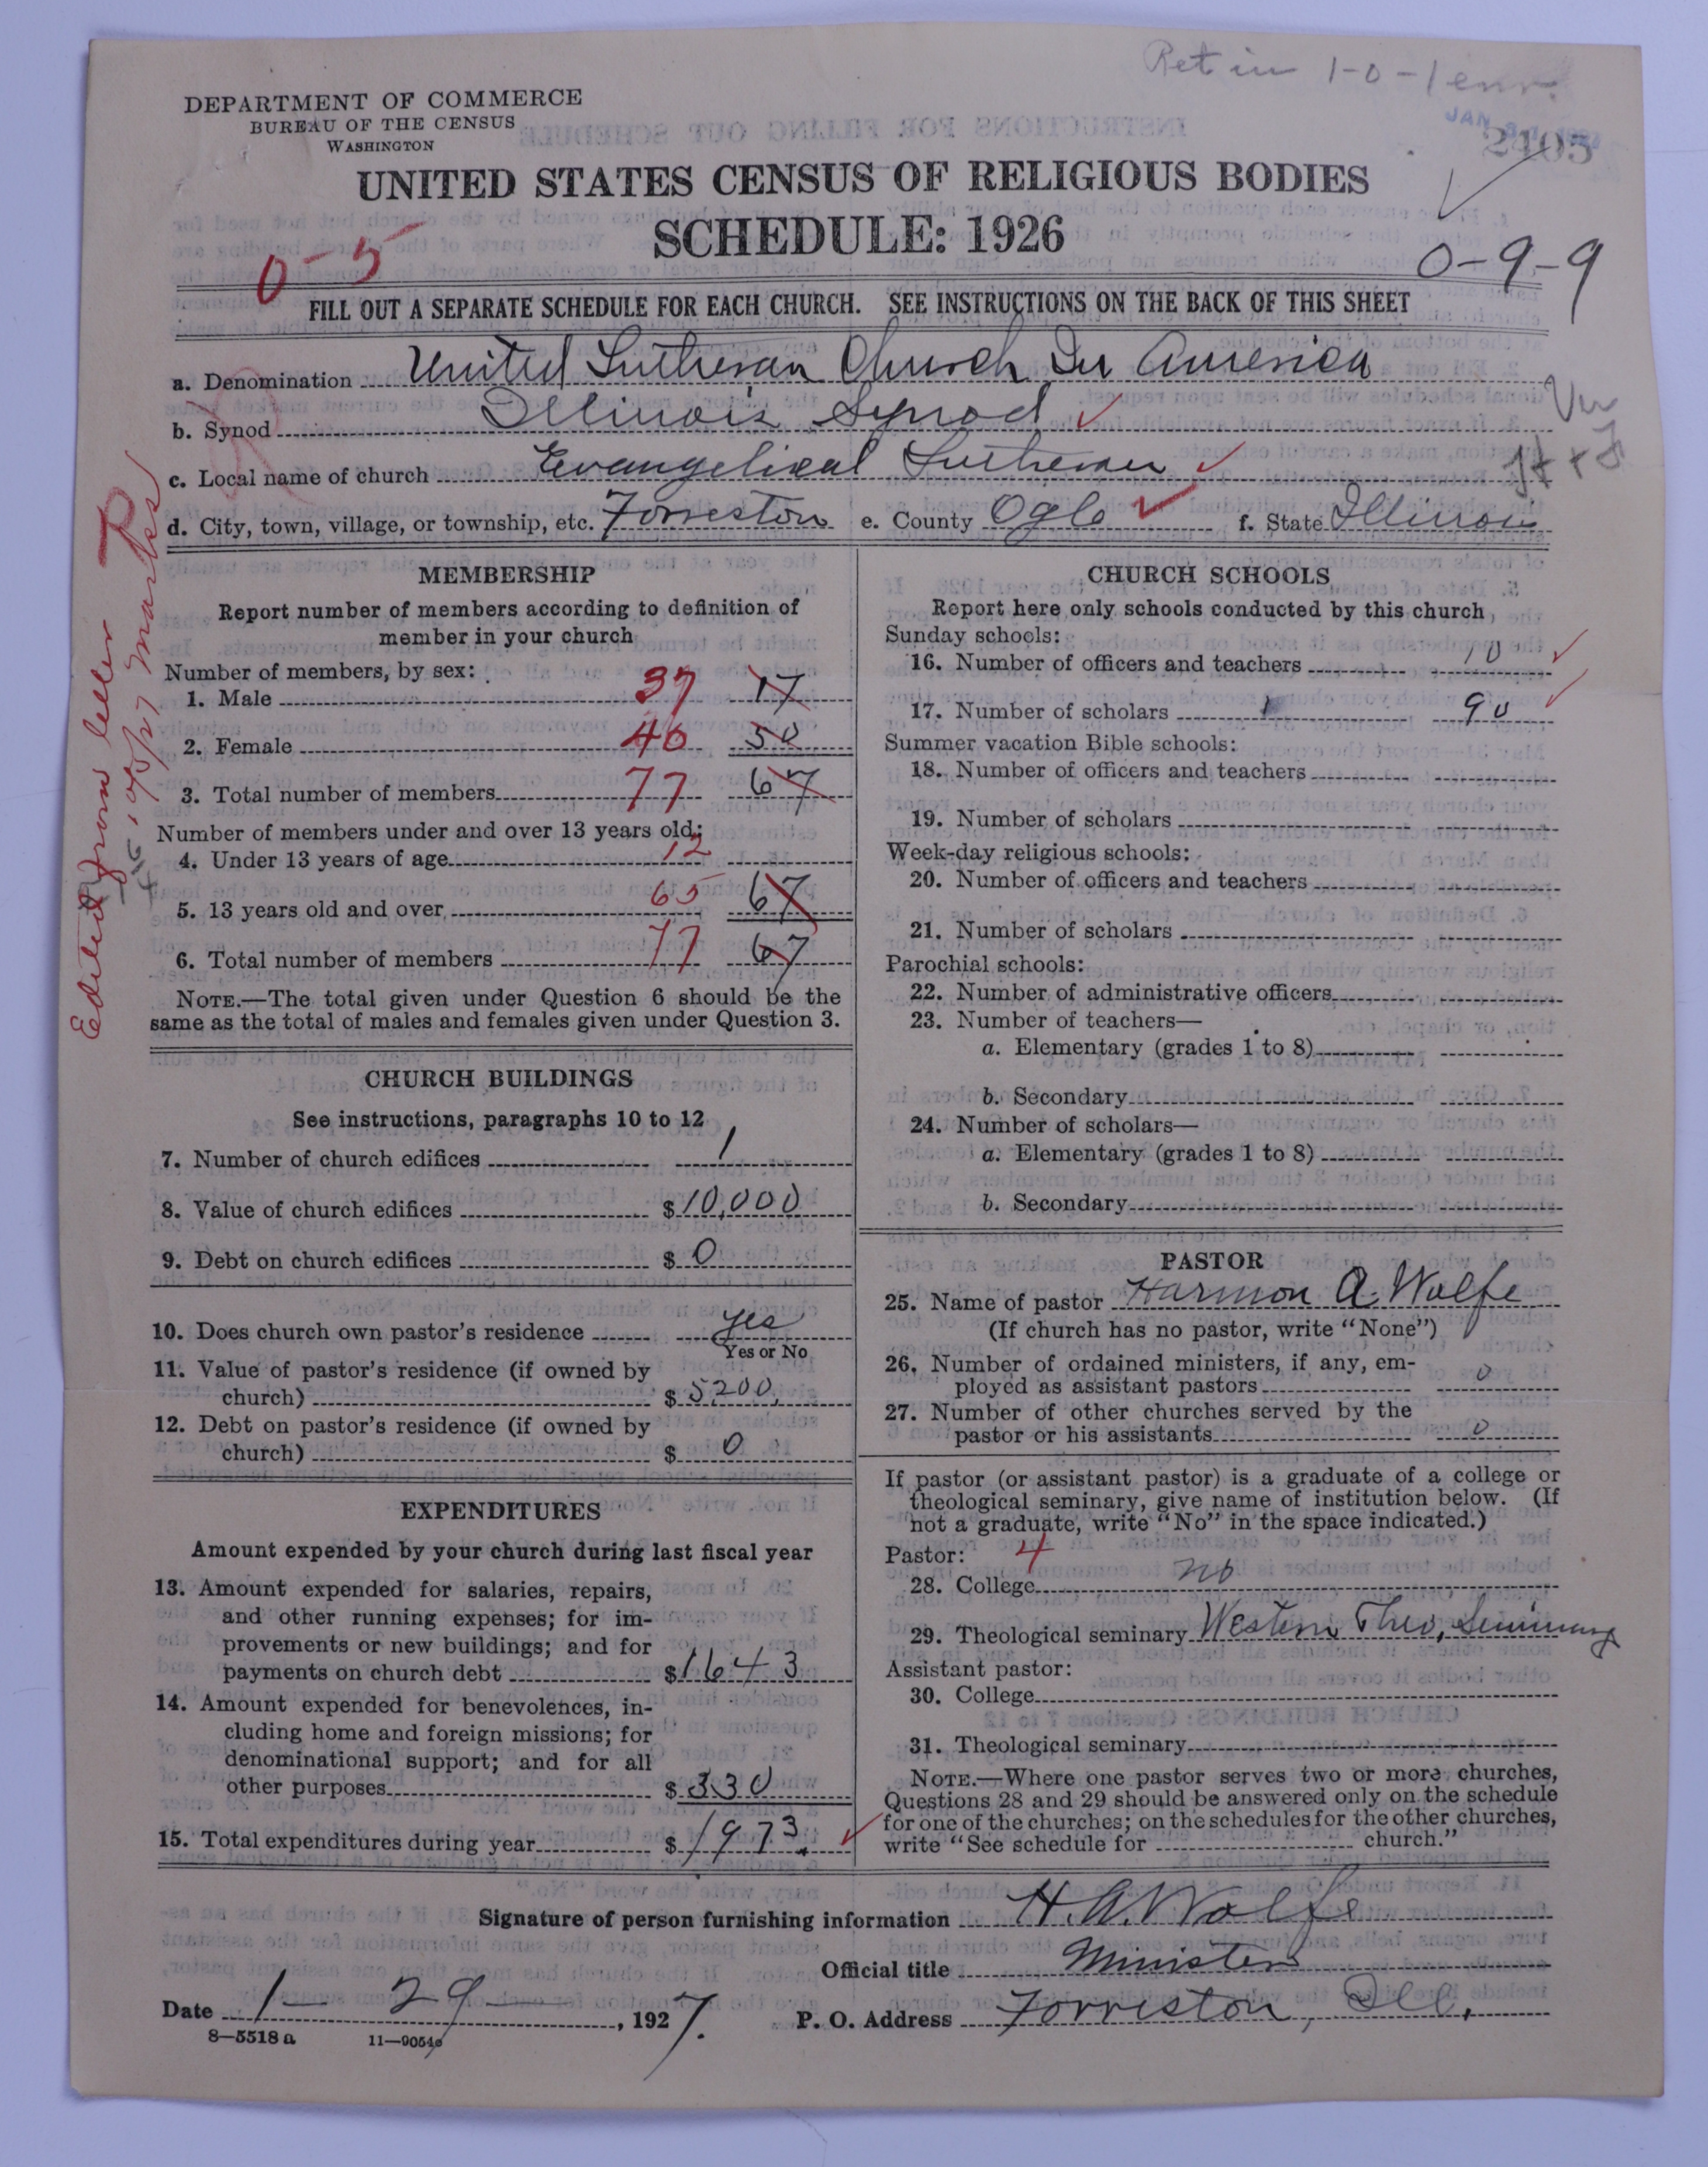 Ret in 1-0-1 env.
DEPARTMENT OF COMMERCE
BUREAU OF THE CENSUS
WASHINGTON
2405
UNITED STATES CENSUS OF RELIGIOUS BODIES
SCHEDULE: 1926
0-5
0-9-9
FILL OUT A SEPARATE SCHEDULE FOR EACH CHURCH. SEE INSTRUCTIONS ON THE BACK OF THIS SHEET
a. Denomination United Lutheran Church In America
b. Synod Illinois Synod
c. Local name of church Evangelical Lutheran
d. City, town, village, or township, etc. Forreston e. County Ogle f. State Illinois
MEMBERSHIP
Report number of members according to definition of
member in your church
Number of members, by sex:
1. Male 37 17
2. Female 40 50
3. Total number of members 77 67
Number of members under and over 13 years old:
4. Under 13 years of age 12
5. 13 years old and over 65 67
6. Total number of members 77 67
NOTE.—The total given under Question 6 should be the
same as the total of males and females given under Question 3.
CHURCH BUILDINGS
See instructions, paragraphs 10 to 12
7. Number of church edifices 1
8. Value of church edifices $10,000
9. Debt on church edifices $0
10. Does church own pastor's residence Yes
Yes or No
11. Value of pastor's residence (if owned by
church) $5200
12. Debt on pastor's residence (if owned by
church) $0
EXPENDITURES
Amount expended by your church during last fiscal year
13. Amount expended for salaries, repairs,
and other running expenses; for im-
provements or new buildings; and for
payments on church debt $1643
14. Amount expended for benevolences, in-
cluding home and foreign missions; for
denominational support; and for all
other purposes $330
15. Total expenditures during year $1973.
CHURCH SCHOOLS
Report here only schools conducted by this church
Sunday schools:
16. Number of officers and teachers 10
17. Number of scholars 90
Summer vacation Bible schools:
18. Number of officers and teachers
19. Number of scholars
Week-day religious schools:
20. Number of officers and teachers
21. Number of scholars
Parochial schools:
22. Number of administrative officers
23. Number of teachers—
a. Elementary (grades 1 to 8)
b. Secondary
24. Number of scholars—
a. Elementary (grades 1 to 8)
b. Secondary
PASTOR
25. Name of pastor Harmon A. Wolfe
(If church has no pastor, write "None")
26. Number of ordained ministers, if any, em-
ployed as assistant pastors 0
27. Number of other churches served by the
pastor or his assistants 0
If pastor (or assistant pastor) is a graduate of a college or
theological seminary, give name of institution below. (If
not a graduate, write "No" in the space indicated.)
Pastor: 4
28. College no
29. Theological seminary Western Theo, Seminary
Assistant pastor:
30. College
31. Theological seminary
NOTE.—Where one pastor serves two or more churches,
Questions 28 and 29 should be answered only on the schedule
for one of the churches; on the schedules for the other churches,
write "See schedule for church."
Signature of person furnishing information H. A. Wolfe
Official title Minister
Date 1-29, 1927. P. O. Address Forreston, Ill.
8-5518 a 11-9054
Edited from letter